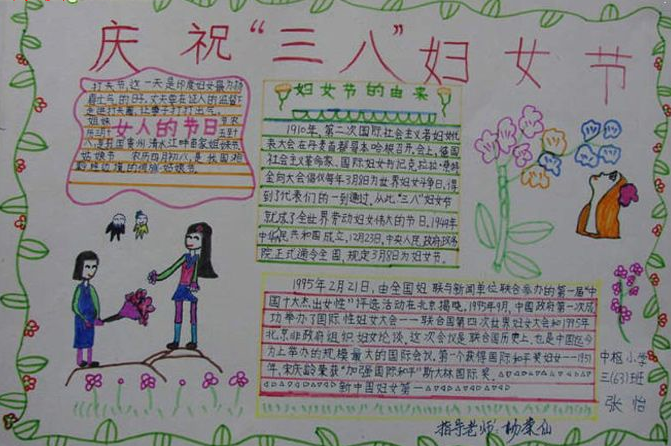 庆祝“三八”妇女节
打夫节,这一天是印度妇女最为扬
眉吐气的日
女人的节日
姑娘节 农历四月初八,是我国湖
妇女节的由来
1910年,第二次国际社会主义者妇女代
表大会在丹麦首都哥本哈根召开会上,德国
社会主义革命家、国际妇女书记克拉拉·
向大会倡仪每年3月8日为世界妇女斗争日,得
到了代表们的一到通过,从此“三八”妇女节
就成了全世界劳动妇女伟大的节日,1949年
中华人民共和国成立,12月23日,中央人民政府政务
院正式通令全国,规定3月8日为妇女节。
1995年2月21日,由全国妇联与新闻单位联合举办的第一届“中
国十大杰出女性”评选活动在北京揭晓。1995年9月,中国政府第一次成
功举办了国际性妇女大会——联合国第四次世界妇女大会和1995年
北京非政府组织妇女论谈,这次会议是联合国历史上,也是中国迄今
为上举办的规模最大的国际会议。第一个获得国际和平奖妇女——1951
年,宋庆龄荣获“加强国际和平”斯大林国际奖。
新中国妇女第一
中枢小学
三(63)班
张怡
指导老师:杨崇仙